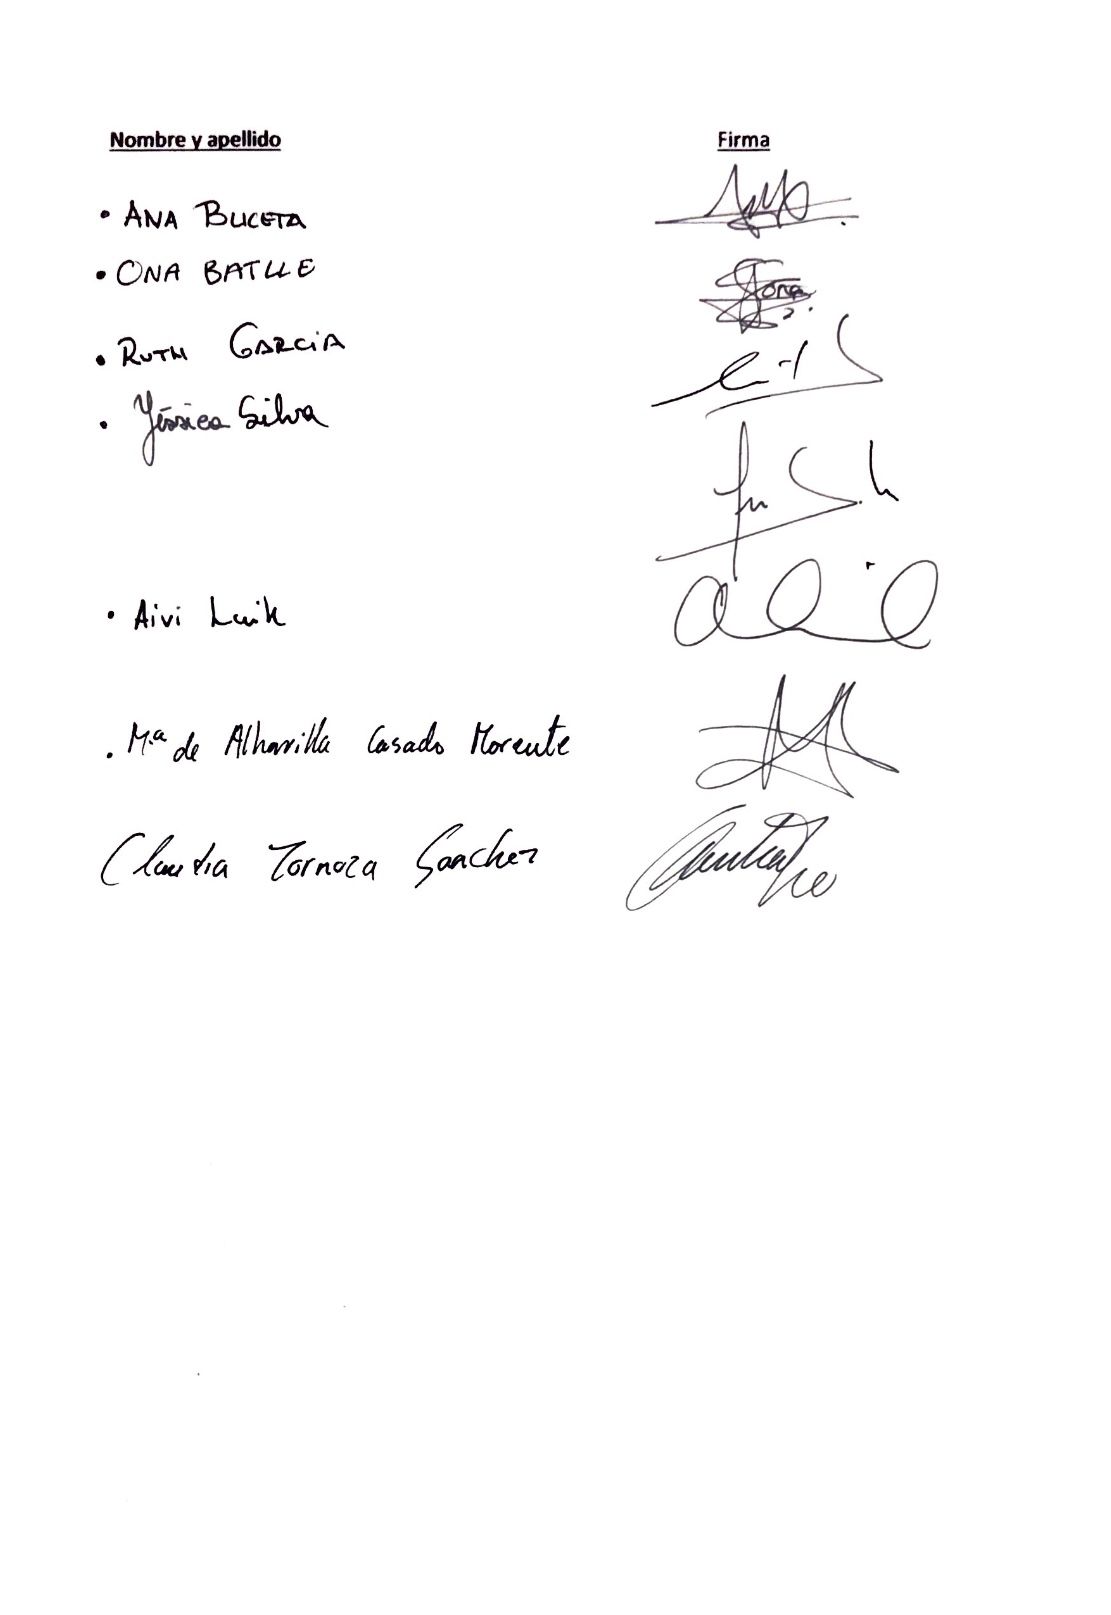 Nombre y apellido Firma
• ANA BUCETA
• ONA BATLLE
Ona
• RUTH GARCIA
• Yéssica Silva
• Aivi Luik
. M.ª de Alharilla Casado Morente
Claudia Zornoza Sanchez